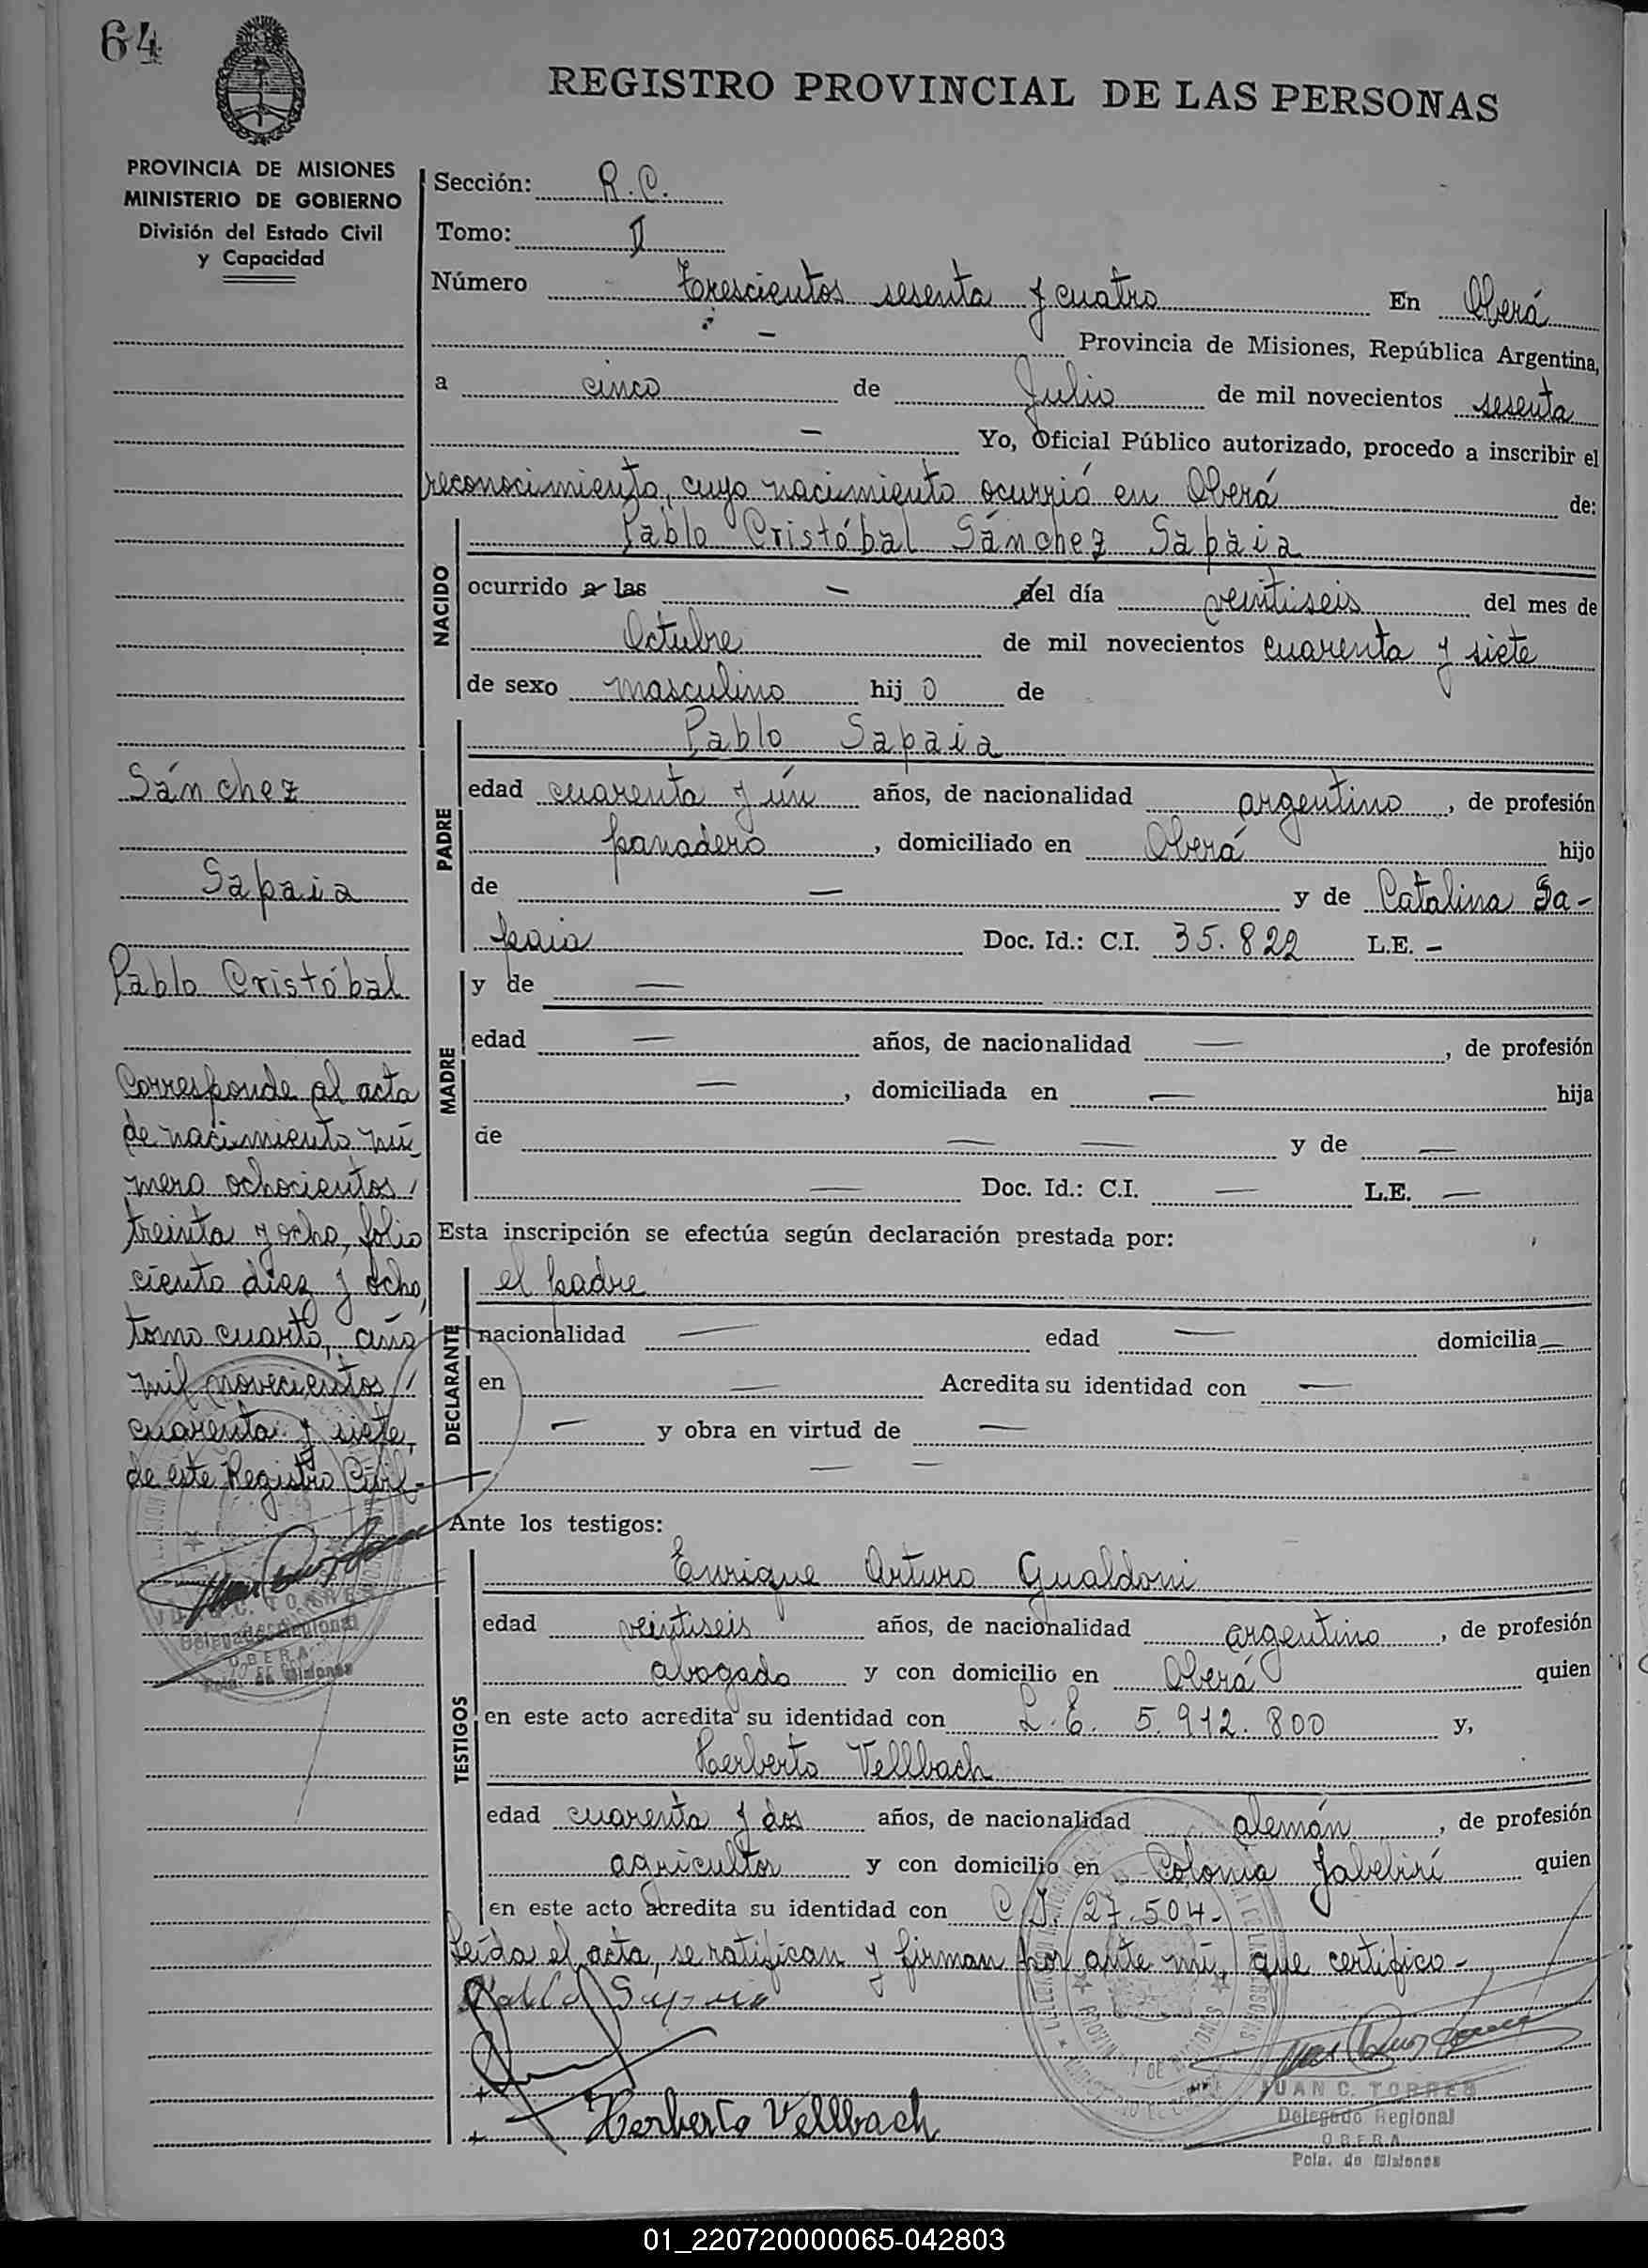 64
REGISTRO PROVINCIAL DE LAS PERSONAS
PROVINCIA DE MISIONES
MINISTERIO DE GOBIERNO
División del Estado Civil
y Capacidad
Sección: R.C.
Tomo: II
Número trescientos sesenta y cuatro En Oberá
— Provincia de Misiones, República Argentina,
a cinco de Julio de mil novecientos sesenta
— Yo, Oficial Público autorizado, procedo a inscribir el
reconocimiento, cuyo nacimiento ocurrió en Oberá de:
NACIDO
Pablo Cristóbal Sánchez Sapaia
ocurrido a las — del día veintiseis del mes de
Octubre de mil novecientos cuarenta y siete
de sexo masculino hijo de
PADRE
Pablo Sapaia
edad cuarenta y ún años, de nacionalidad argentino, de profesión
panadero, domiciliado en Oberá hijo
de — y de Catalina Sa-
paia Doc. Id.: C.I. 35.822 L.E. -
MADRE
y de —
edad — años, de nacionalidad —, de profesión
—, domiciliada en — hija
de — — y de —
— Doc. Id.: C.I. — L.E. —
Esta inscripción se efectúa según declaración prestada por:
DECLARANTE
el padre
nacionalidad — edad — domicilia —
en — Acredita su identidad con —
— y obra en virtud de —
— —
Ante los testigos:
TESTIGOS
Enrique Arturo Gualdoni
edad veintiseis años, de nacionalidad argentino, de profesión
abogado y con domicilio en Oberá quien
en este acto acredita su identidad con L.E. 5.912.800 y,
Herberto Vellbach
edad cuarenta y dos años, de nacionalidad alemán, de profesión
agricultor y con domicilio en Colonia Jabebirí quien
en este acto acredita su identidad con C.I. 27.504-
Leída el acta, se ratifican y firman por ante mí, que certifico-
Pablo Sapaia
Herberto Vellbach
JUAN C. TORRES
Delegado Regional
OBERA
Pcia. de Misiones
Sánchez
Sapaia
Pablo Cristóbal
Corresponde al acta
de nacimiento nú-
mero ochocientos
treinta y ocho, folio
ciento diez y ocho,
tomo cuarto, año
mil novecientos
cuarenta y siete,
de este Registro Civil-
JUAN C. TORRES
Delegado Regional
OBERA
Pcia. de Misiones
01_220720000065-042803